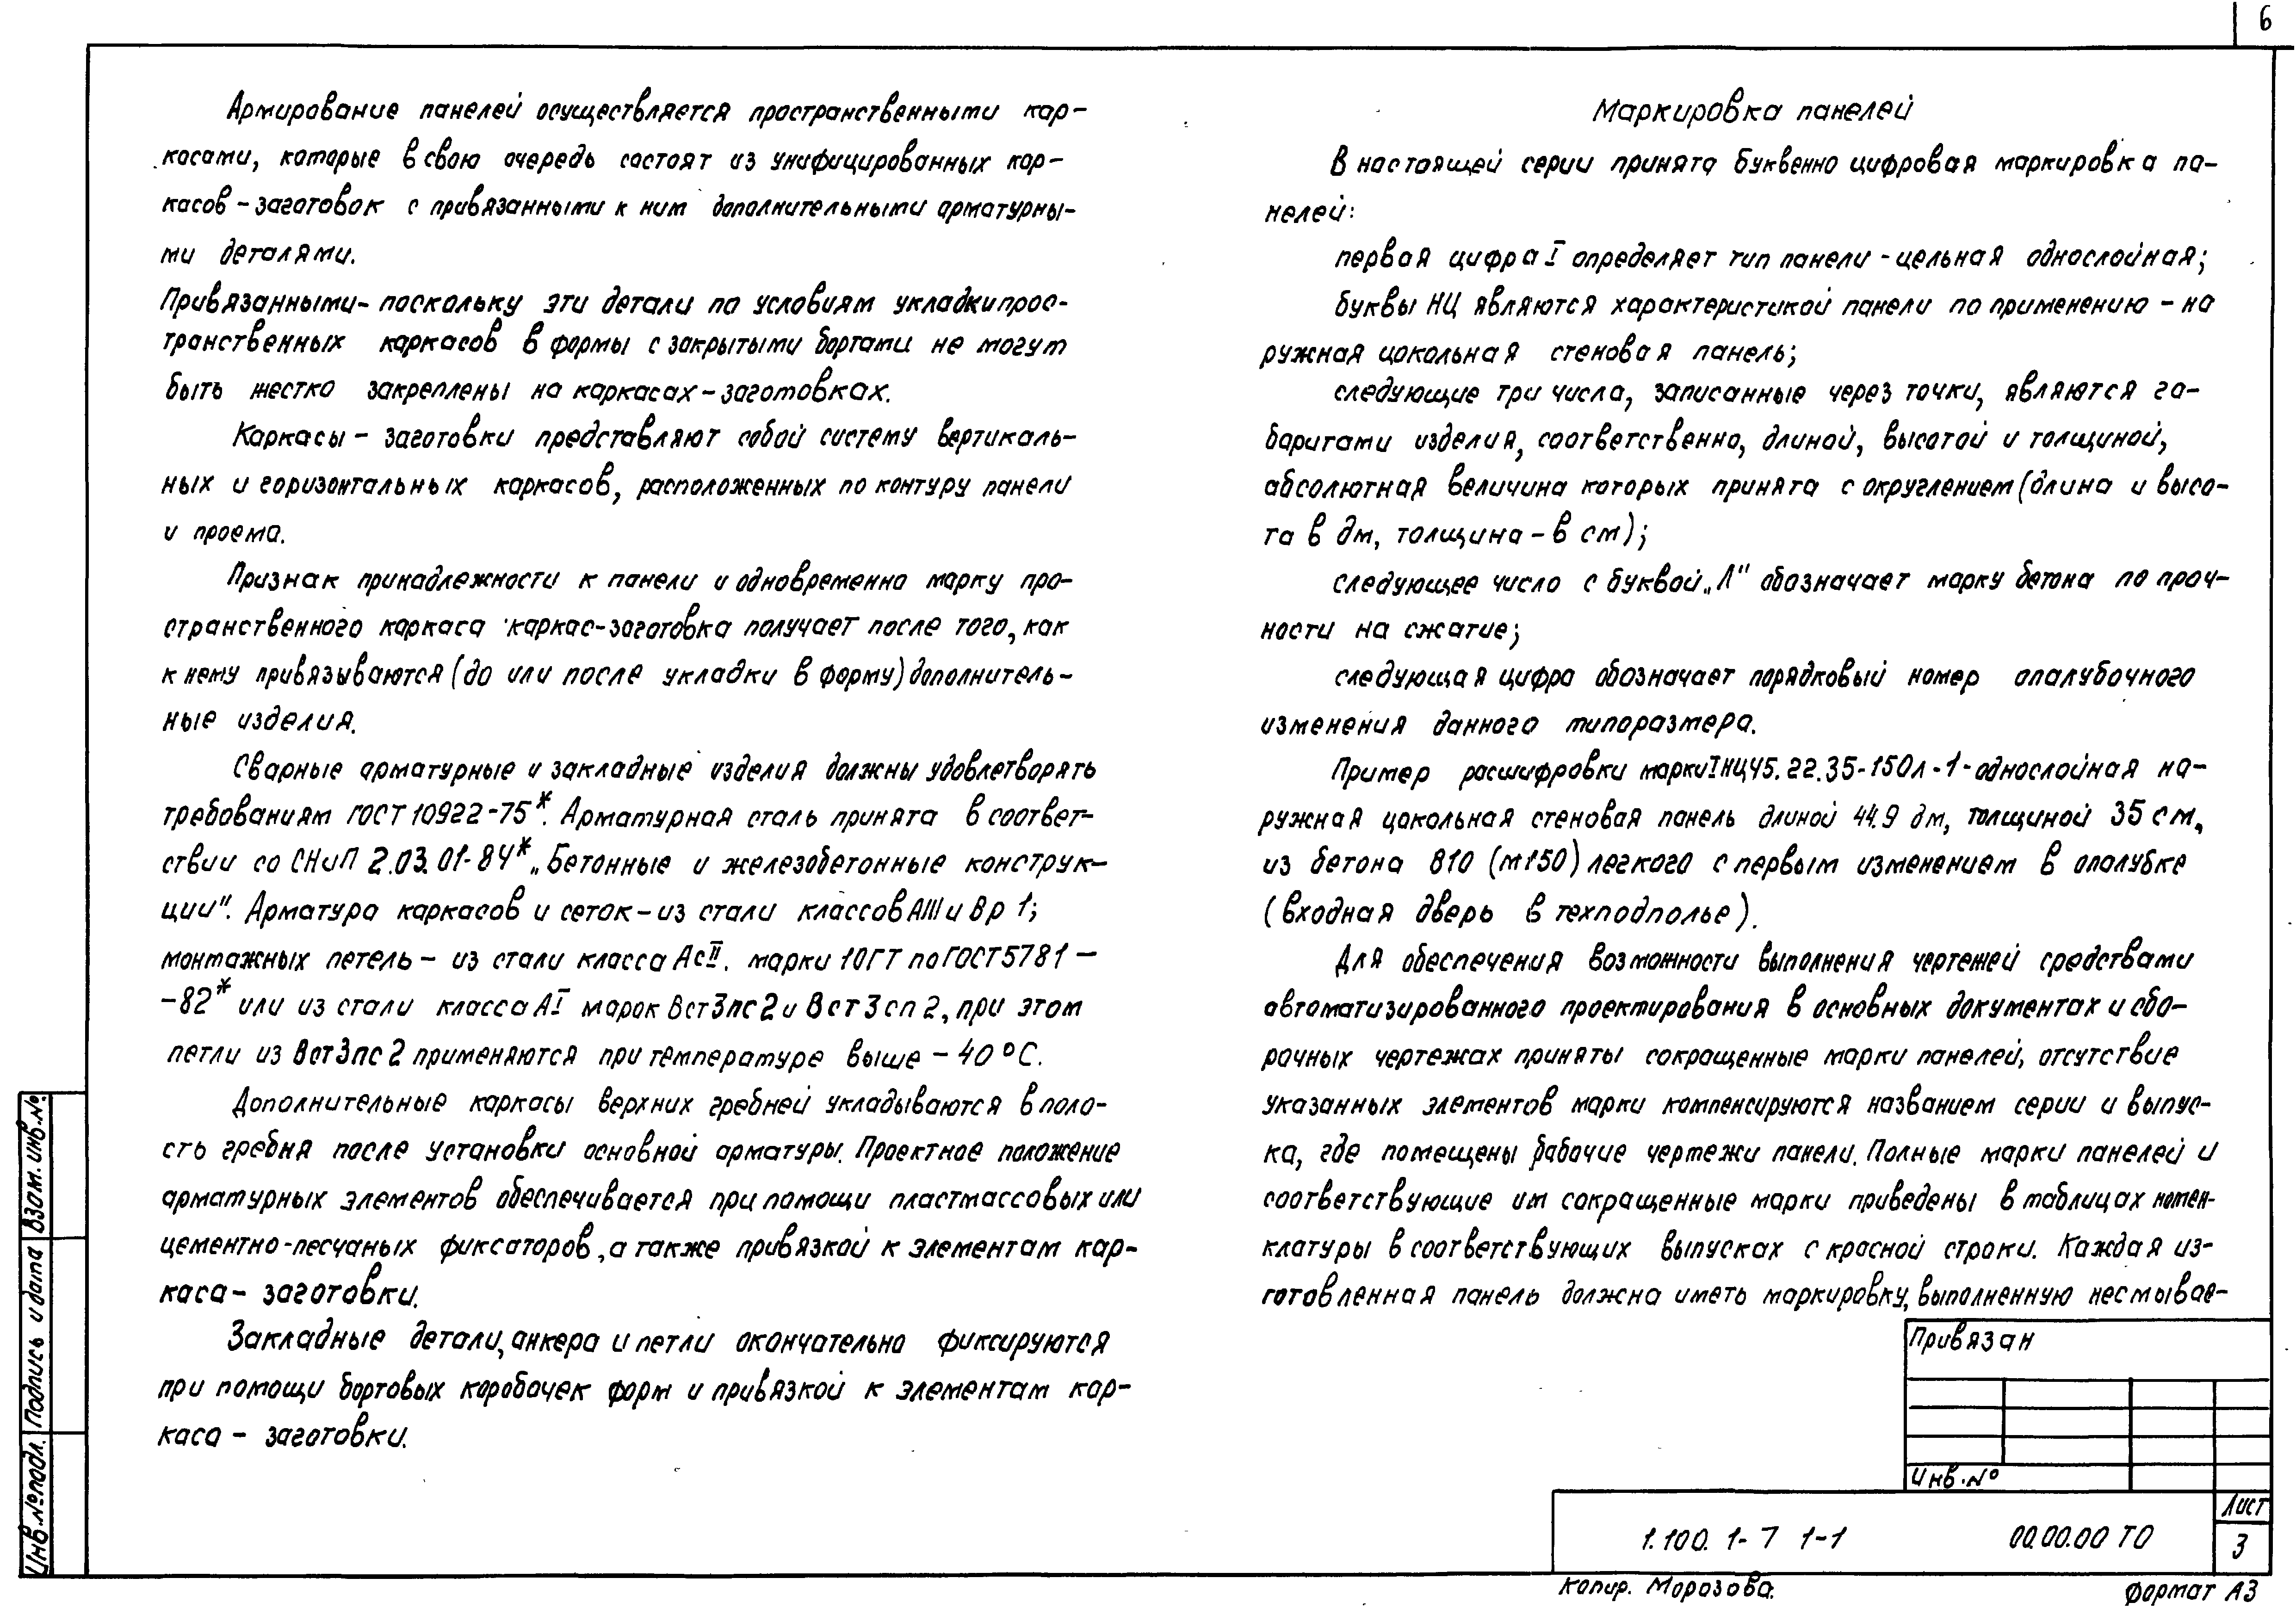 6
Армирование панелей осуществляется пространственными кар-
касами, которые в свою очередь состоят из унифицированных кар-
касов-заготовок с привязанными к ним дополнительными арматурны-
ми деталями.
Привязанными- поскольку эти детали по условиям укладки прос-
транственных каркасов в формы с закрытыми бортами не могут
быть жестко закреплены на каркасах-заготовках.
Каркасы - заготовки представляют собой систему вертикаль-
ных и горизонтальных каркасов, расположенных по контуру панели
и проема.
Признак принадлежности к панели и одновременно марку про-
странственного каркаса каркас-заготовка получает после того, как
к нему привязываются (до или после укладки в форму) дополнитель-
ные изделия.
Сварные арматурные и закладные изделия должны удовлетворять
требованиям ГОСТ 10922-75*. Арматурная сталь принята в соответ-
ствии со СНиП 2.03.01-84* „Бетонные и железобетонные конструк-
ции". Арматура каркасов и сеток-из стали классов АIII и Вр 1;
монтажных петель- из стали класса АсII. марки 10ГТ по ГОСТ 5781-
-82* или из стали класса АI марок Вст3пс2 и Вст3сп2, при этом
петли из Вст3пс2 применяются при температуре выше -40°С.
Дополнительные каркасы верхних гребней укладываются в поло-
сть гребня после установки основной арматуры. Проектное положение
арматурных элементов обеспечивается при помощи пластмассовых или
цементно-песчаных фиксаторов, а также привязкой к элементам кар-
каса- заготовки.
Закладные детали, анкера и петли окончательно фиксируются
при помощи бортовых коробочек форм и привязкой к элементам кар-
каса - заготовки.
Маркировка панелей
В настоящей серии принята буквенно цифровая маркировка па-
нелей:
первая цифра I определяет тип панели - цельная однослойная;
буквы НЦ являются характеристикой панели по применению - на
ружная цокольная стеновая панель;
следующие три числа, записанные через точки, являются га-
баритами изделия, соответственно, длиной, высотой и толщиной,
абсолютная величина которых принята с округлением (длина и высо-
та в дм, толщина - в см);
следующее число с буквой „Л" обозначает марку бетона по проч-
ности на сжатие;
следующая цифра обозначает порядковый номер опалубочного
изменения данного типоразмера.
Пример расшифровки марки IНЦ45.22.35-150л-1-однослойная на-
ружная цокольная стеновая панель длиной 44.9 дм, толщиной 35 см,
из бетона В10 (м150) легкого с первым изменением в опалубке
(входная дверь в техподполье).
Для обеспечения возможности выполнения чертежей средствами
автоматизированного проектирования в основных документах и сбо-
рочных чертежах приняты сокращенные марки панелей, отсутствие
указанных элементов марки компенсируются названием серии и выпус-
ка, где помещены рабочие чертежи панели. Полные марки панелей и
соответствующие им сокращенные марки приведены в таблицах номен-
клатуры в соответствующих выпусках с красной строки. Каждая из-
готовленная панель должна иметь маркировку, выполненную несмывае-
Привязан
Инв.№
1.100.1-7 1-1
00.00.00 ТО
Лист
3
Копир. Морозова.
Формат А3
Взам. инв.№
Подпись и дата
Инв.№подл.